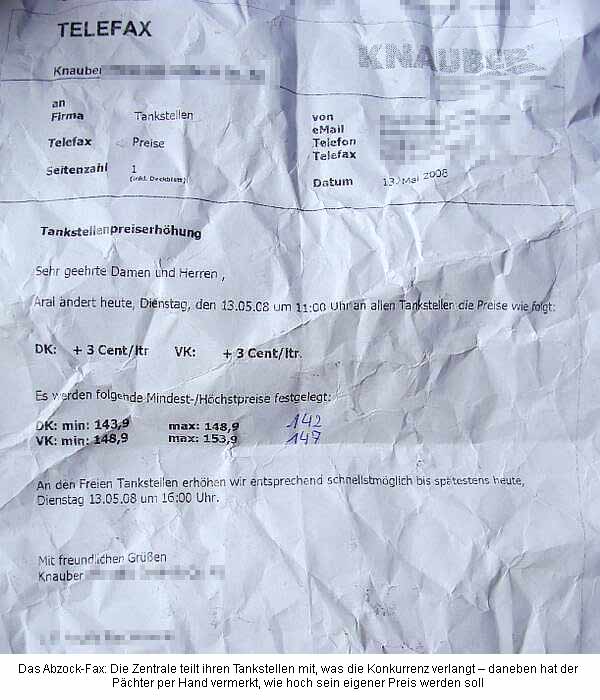 TELEFAX
KNAUBER
Knauber
an
Firma Tankstellen
Telefax Preise
Seitenzahl 1
(inkl. Deckblatt)
von
eMail
Telefon
Telefax
Datum 13. Mai 2008
Tankstellenpreiserhöhung
Sehr geehrte Damen und Herren ,
Aral ändert heute, Dienstag, den 13.05.08 um 11:00 Uhr an allen Tankstellen die Preise wie folgt:
DK: + 3 Cent/ltr VK: + 3 Cent/ltr.
Es werden folgende Mindest-/Höchstpreise festgelegt:
DK: min: 143,9 max: 148,9 142
VK: min: 148,9 max: 153,9 147
An den Freien Tankstellen erhöhen wir entsprechend schnellstmöglich bis spätestens heute,
Dienstag 13.05.08 um 16:00 Uhr.
Mit freundlichen Grüßen
Knauber
Das Abzock-Fax: Die Zentrale teilt ihren Tankstellen mit, was die Konkurrenz verlangt – daneben hat der
Pächter per Hand vermerkt, wie hoch sein eigener Preis werden soll